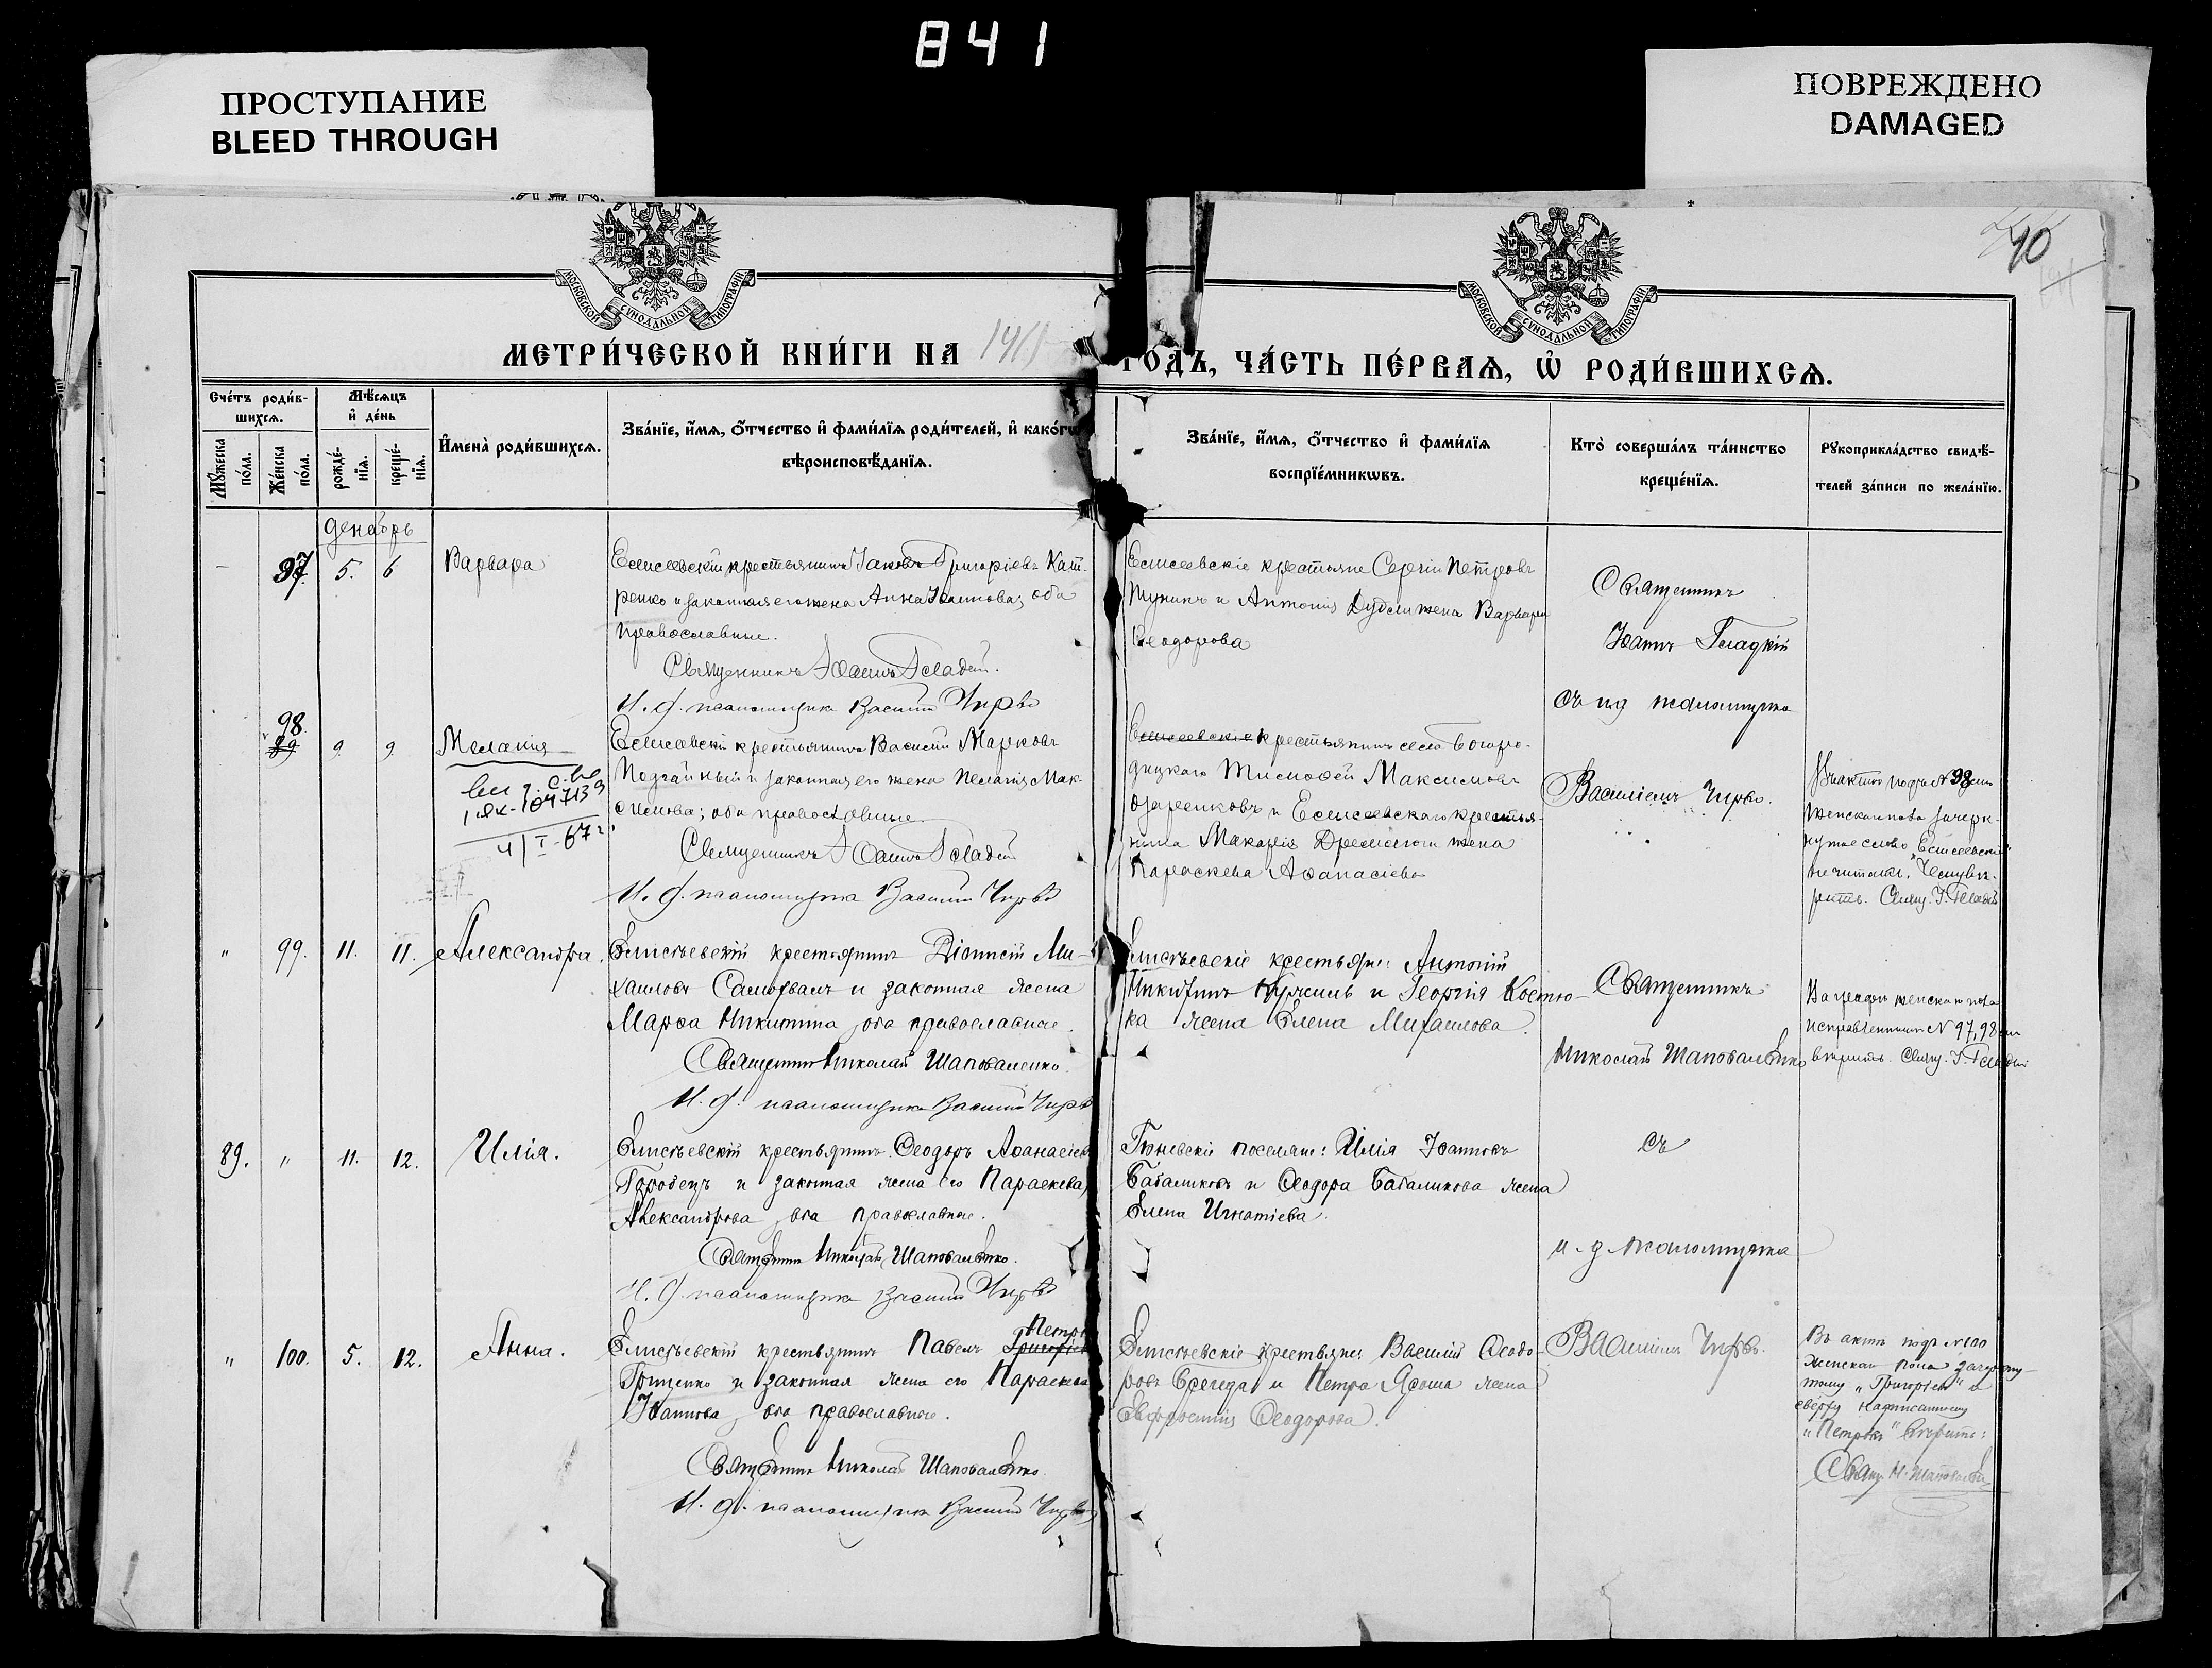 841
ПРОСТУПАНИЕ
BLEED THROUGH
ПОВРЕЖДЕНО
DAMAGED
40
МОСКОВСКОЙ СУНОДАЛЬНОЙ ТИПОГРАФІИ
МОСКОВСКОЙ СУНОДАЛЬНОЙ ТИПОГРАФІИ
МЕТРИ́ЧЕСКОЙ КНИ́ГИ НА 1911 ГОДЪ, ЧА́СТЬ ПЕ́РВАѦ, Ѡ҆ РОДИ́ВШИХСѦ.
Сче́тъ роди́в-
шихсѧ.
Мꙋ́жеска по́ла.
Же́нска по́ла.
Мѣ́сѧцъ
и҆ де́нь
рожде́-нїѧ.
креще́-нїѧ.
И҆мена̀ роди́вшихсѧ.
Зва́нїе, и҆́мѧ, ѻ҆́тчество и҆ фами́лїѧ роди́телей, и҆ како́гѡ
вѣроисповѣ́данїѧ.
Зва́нїе, и҆́мѧ, ѻ҆́тчество и҆ фами́лїѧ
воспрїе́мникѡвъ.
Кто̀ соверша́лъ та́инство
креще́нїѧ.
Рꙋкоприкла́дство свидѣ́-
телей за́писи по жела́нїю.
Декабрь
97. 5. 6 Варвара
Елисеевскій крестьянинъ Іаковъ Григоріевъ Кат-
ренко и законная его жена Анна Іоаннова; оба
православные.
Священникъ Іоаннъ Гладкій.
И. д. псаломщика Василій Чирва
Елисеевскіе крестьяне Сергій Петровъ
и Антонія жена Варвара
Ѳеодорова
Священникъ
Іоаннъ Гладкій
съ и д псаломщика
98. 89 9 9 Меланія
Елисеевскій крестьянинъ Василій Марковъ
Подгайный и законная его жена Пелагія Мак-
симова; оба православные.
Священникъ Іоаннъ Гладкій
И. д. псаломщика Василій Чирва
Елисеевскіе крестьянинъ села Богоро-
дицкаго Тимоѳей Максимовъ
и Елисеевскаго крестья-
нина Макарія жена
Параскева Аѳанасіева
Василіемъ Чирво.
Въ актѣ подъ № 98
женскаго пола зачерк-
нутое слово „Елисеевскіе"
не читать.
Свящ. І. Гладкій
" 99. 11. 11. Александра.
Елисѣевскій крестьянинъ Діонисій Ми-
хаиловъ Самойваль и законная жена
Марѳа Никитина, оба православные.
Священникъ Николай Шаповаленко.
И. д. псаломщика Василій Чирва
Елисѣевскіе крестьяне: Антоній
Никитинъ и Георгія Костю-
ка жена Елена Михаилова.
Священникъ
Николай Шаповаленко
Въ графѣ женскаго пола
исправленному № 97, 98
вѣрить. Свящ. І. Гладкій
89. " 11. 12. Илія.
Елисѣевскій крестьянинъ Ѳеодоръ Аѳанасіевъ
Городецъ и законная жена его Параскева
Александрова, оба православные.
Священникъ Николай Шаповаленко.
И. д. псаломщика Василій Чирва
Гюневскіе поселяне: Илія Іоанновъ
Бабаликовъ и Ѳеодора Бабаликова жена
Елена Игнатіева.
съ
и. д. псаломщика
" 100. 5. 12. Анна.
Петровъ
Елисѣевскій крестьянинъ Павелъ Григорьевъ
Гриценко и законная жена его Параскева
Іоаннова, оба православные.
Священникъ Николай Шаповаленко.
И. д. псаломщика Василій Чирва
Елисѣевскіе крестьяне: Василій Ѳеодо-
ровъ и Петра Яроша жена
Евфросинія Ѳеодорова.
Василіемъ Чирво.
Въ актѣ подъ № 100
женскаго пола зачеркну-
тому „Григорьевъ" и
сверху надписанному
„Петровъ" вѣрить:
Свящ. Н. Шаповаленко